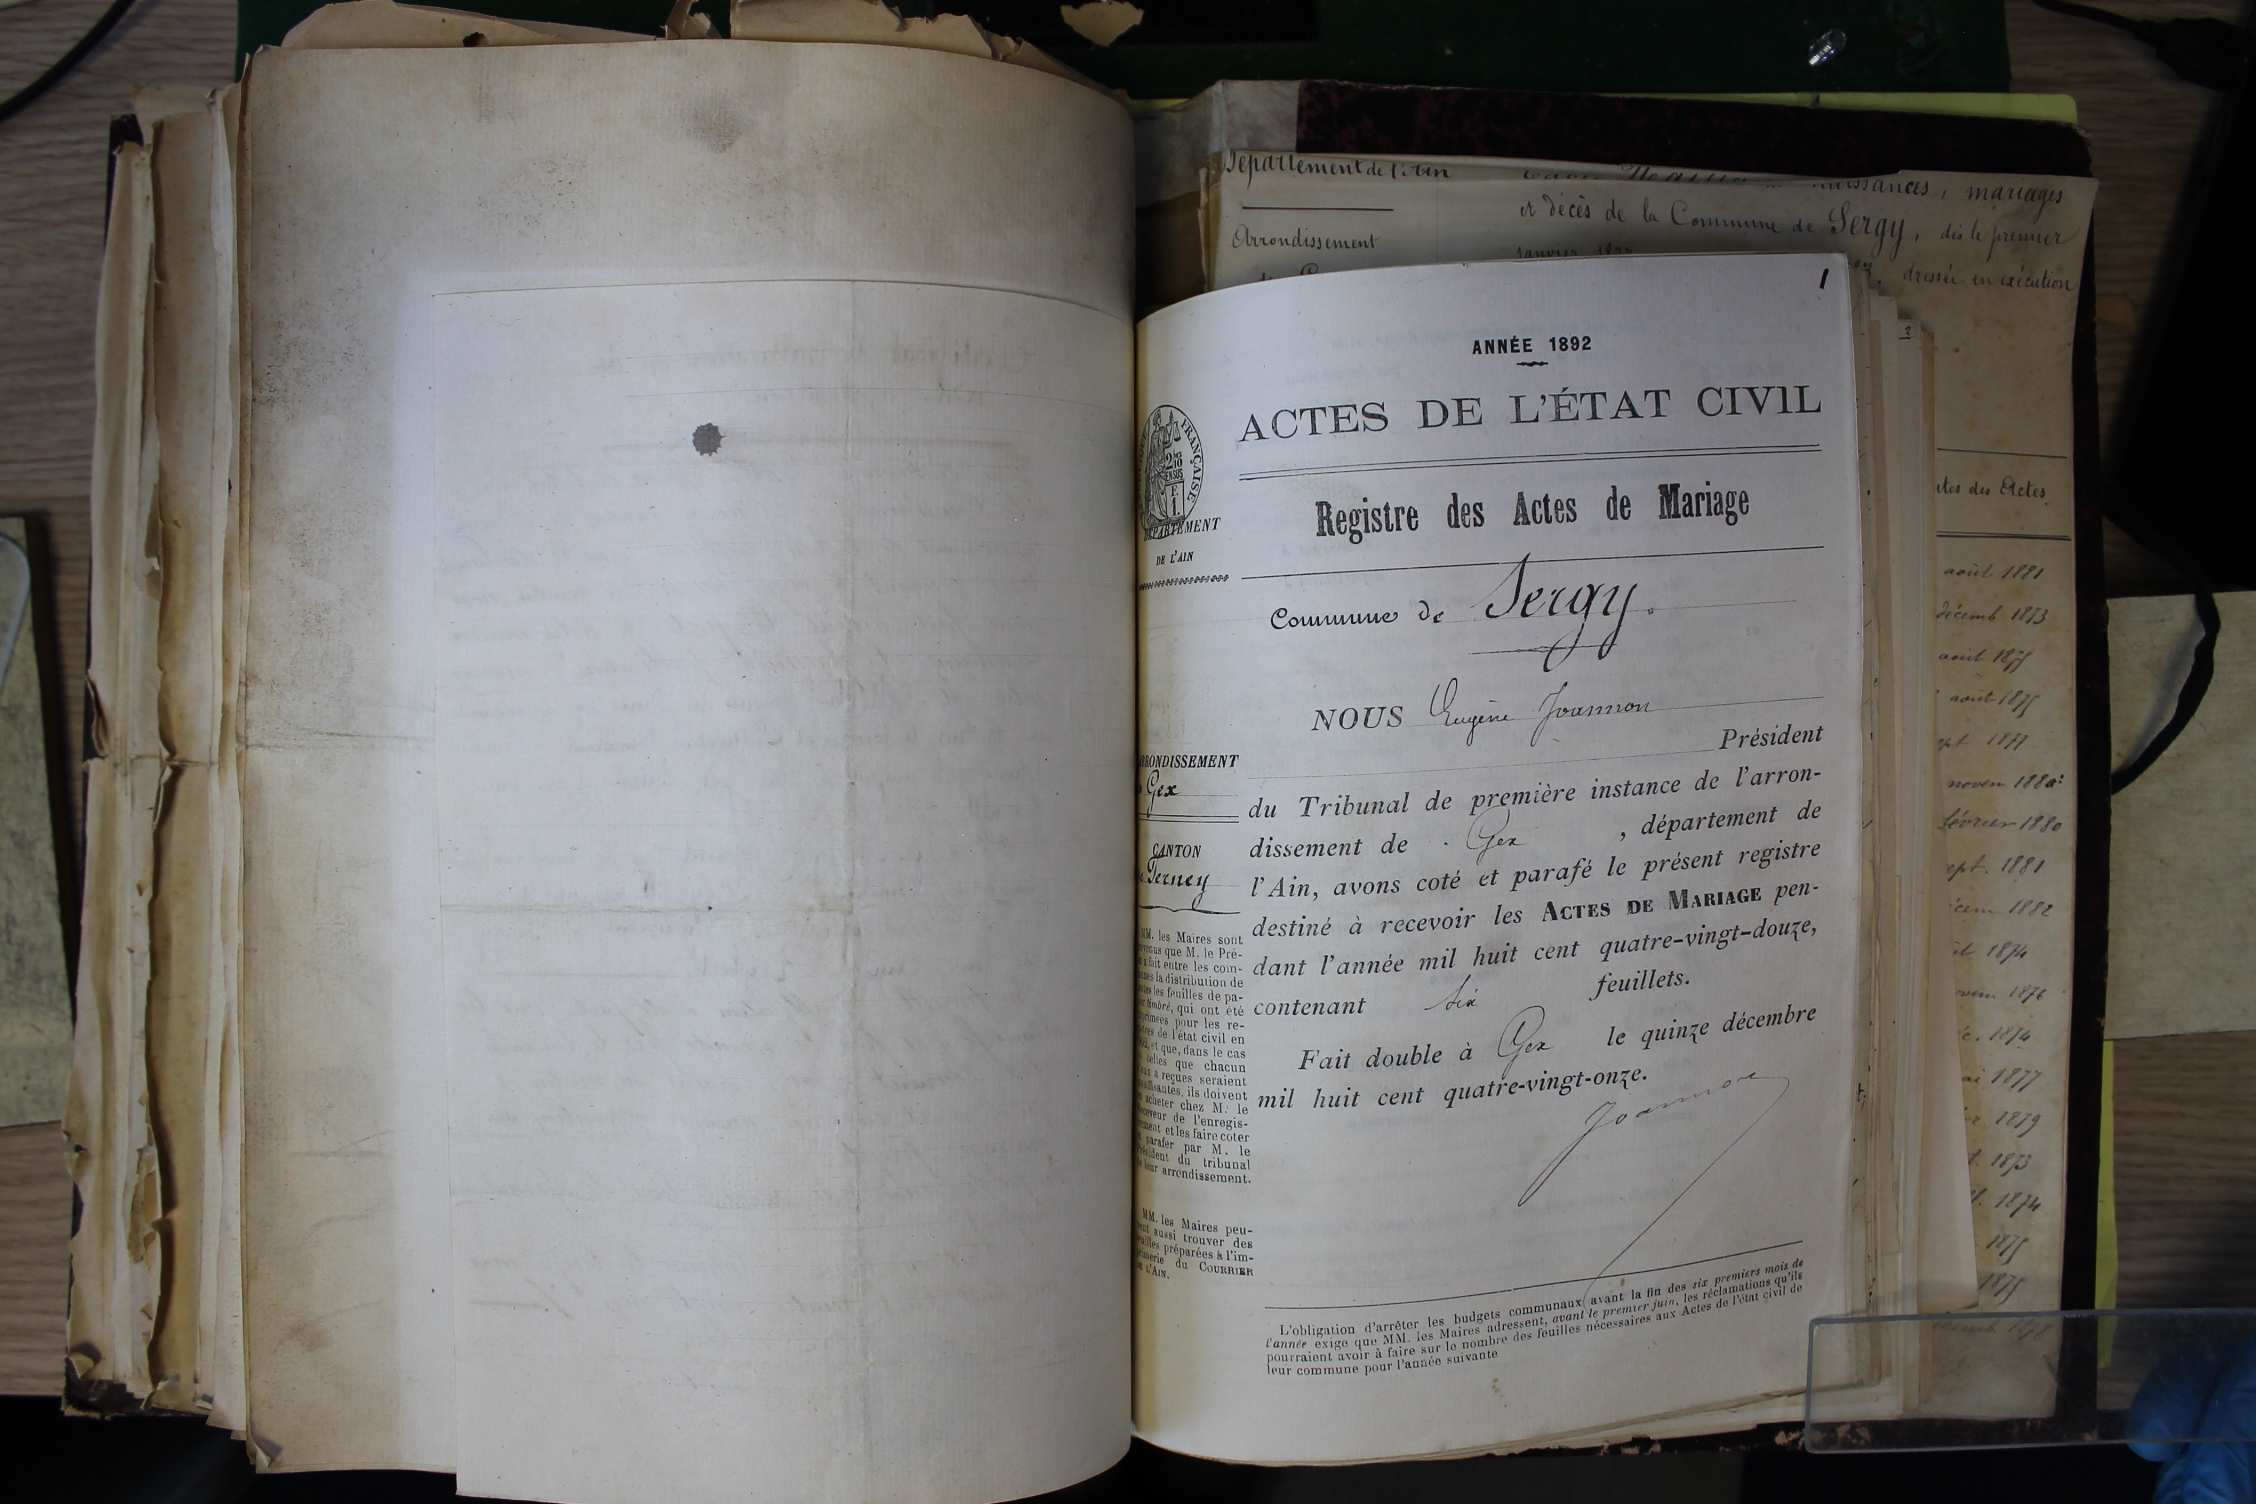 Département de l'Ain
naissances, mariages
et décès de la Commune de Sergy, dès le premier
Arrondissement
janvier
dressée en exécution
1
3
ANNÉE 1892
ACTES DE L'ÉTAT CIVIL
FRANÇAISE
DÉPARTEMENT
DE L'AIN
Registre des Actes de Mariage
Commune de Sergy.
NOUS Eugène Joannon
Président
du Tribunal de première instance de l'arron-
dissement de Gex, département de
l'Ain, avons coté et parafé le présent registre
destiné à recevoir les ACTES DE MARIAGE pen-
dant l'année mil huit cent quatre-vingt-douze,
contenant six feuillets.
Fait double à Gex le quinze décembre
mil huit cent quatre-vingt-onze.
Joannon
ARRONDISSEMENT
Gex
CANTON
Ferney
MM. les Maires sont
que M. le Pré-
fait entre les com-
la distribution de
les feuilles de pa-
timbré, qui ont été
pour les re-
de l'état civil en
et que, dans le cas
celles que chacun
a reçues seraient
ils doivent
acheter chez M. le
de l'enregis-
et les faire coter
parafer par M. le
du tribunal
leur arrondissement.
MM. les Maires peu-
aussi trouver des
préparées à l'im-
du COURRIER
L'AIN.
L'obligation d'arrêter les budgets communaux avant la fin des six premiers mois de
l'année exige que MM. les Maires adressent, avant le premier juin, les réclamations qu'ils
pourraient avoir à faire sur le nombre des feuilles nécessaires aux Actes de l'état civil de
leur commune pour l'année suivante
des Actes
août 1881
décemb 1873
août 1875
août 1875
1877
novem 1880
février 1880
sept. 1881
1882
1874
1876
1874
1877
1879
1873
1874
1875
1875
1878